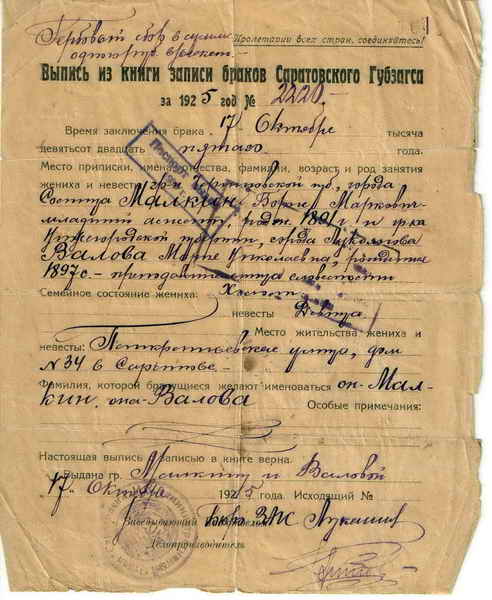 Гербовый сбор в сумме
один руб взыскан.
Пролетарии всех стран, соединяйтесь!
Выпись из книги записи браков Саратовского Губзагса
за 1925 год № 2220.
Время заключения брака 17 Октября тысяча
девятьсот двадцать пятого года.
Место приписки, имена, отчества, фамилии, возраст и род занятия
жениха и невесты гр-н Черниговской губ, города
Малкин Борис Маркович
младший ассист, родил. 1891 г и гр-ка
Нижегородской губернии, города
Валова Мария Николаевна родилась
1897 г. - преподавательница словесности
Семейное состояние жениха: Холост
невесты Девица
Место жительства жениха и
невесты: улица, дом
№ 34 в Саратове.
Фамилия, которой брачущиеся желают именоваться он-Мал-
кин, она-Валова
Особые примечания:
Настоящая выпись с записью в книге верна.
Выдана гр. Малкину и Валовой
"17" Октября 1925 года. Исходящий №
Заведывающий Бюро ЗАГС Лукашев
Делопроизводитель